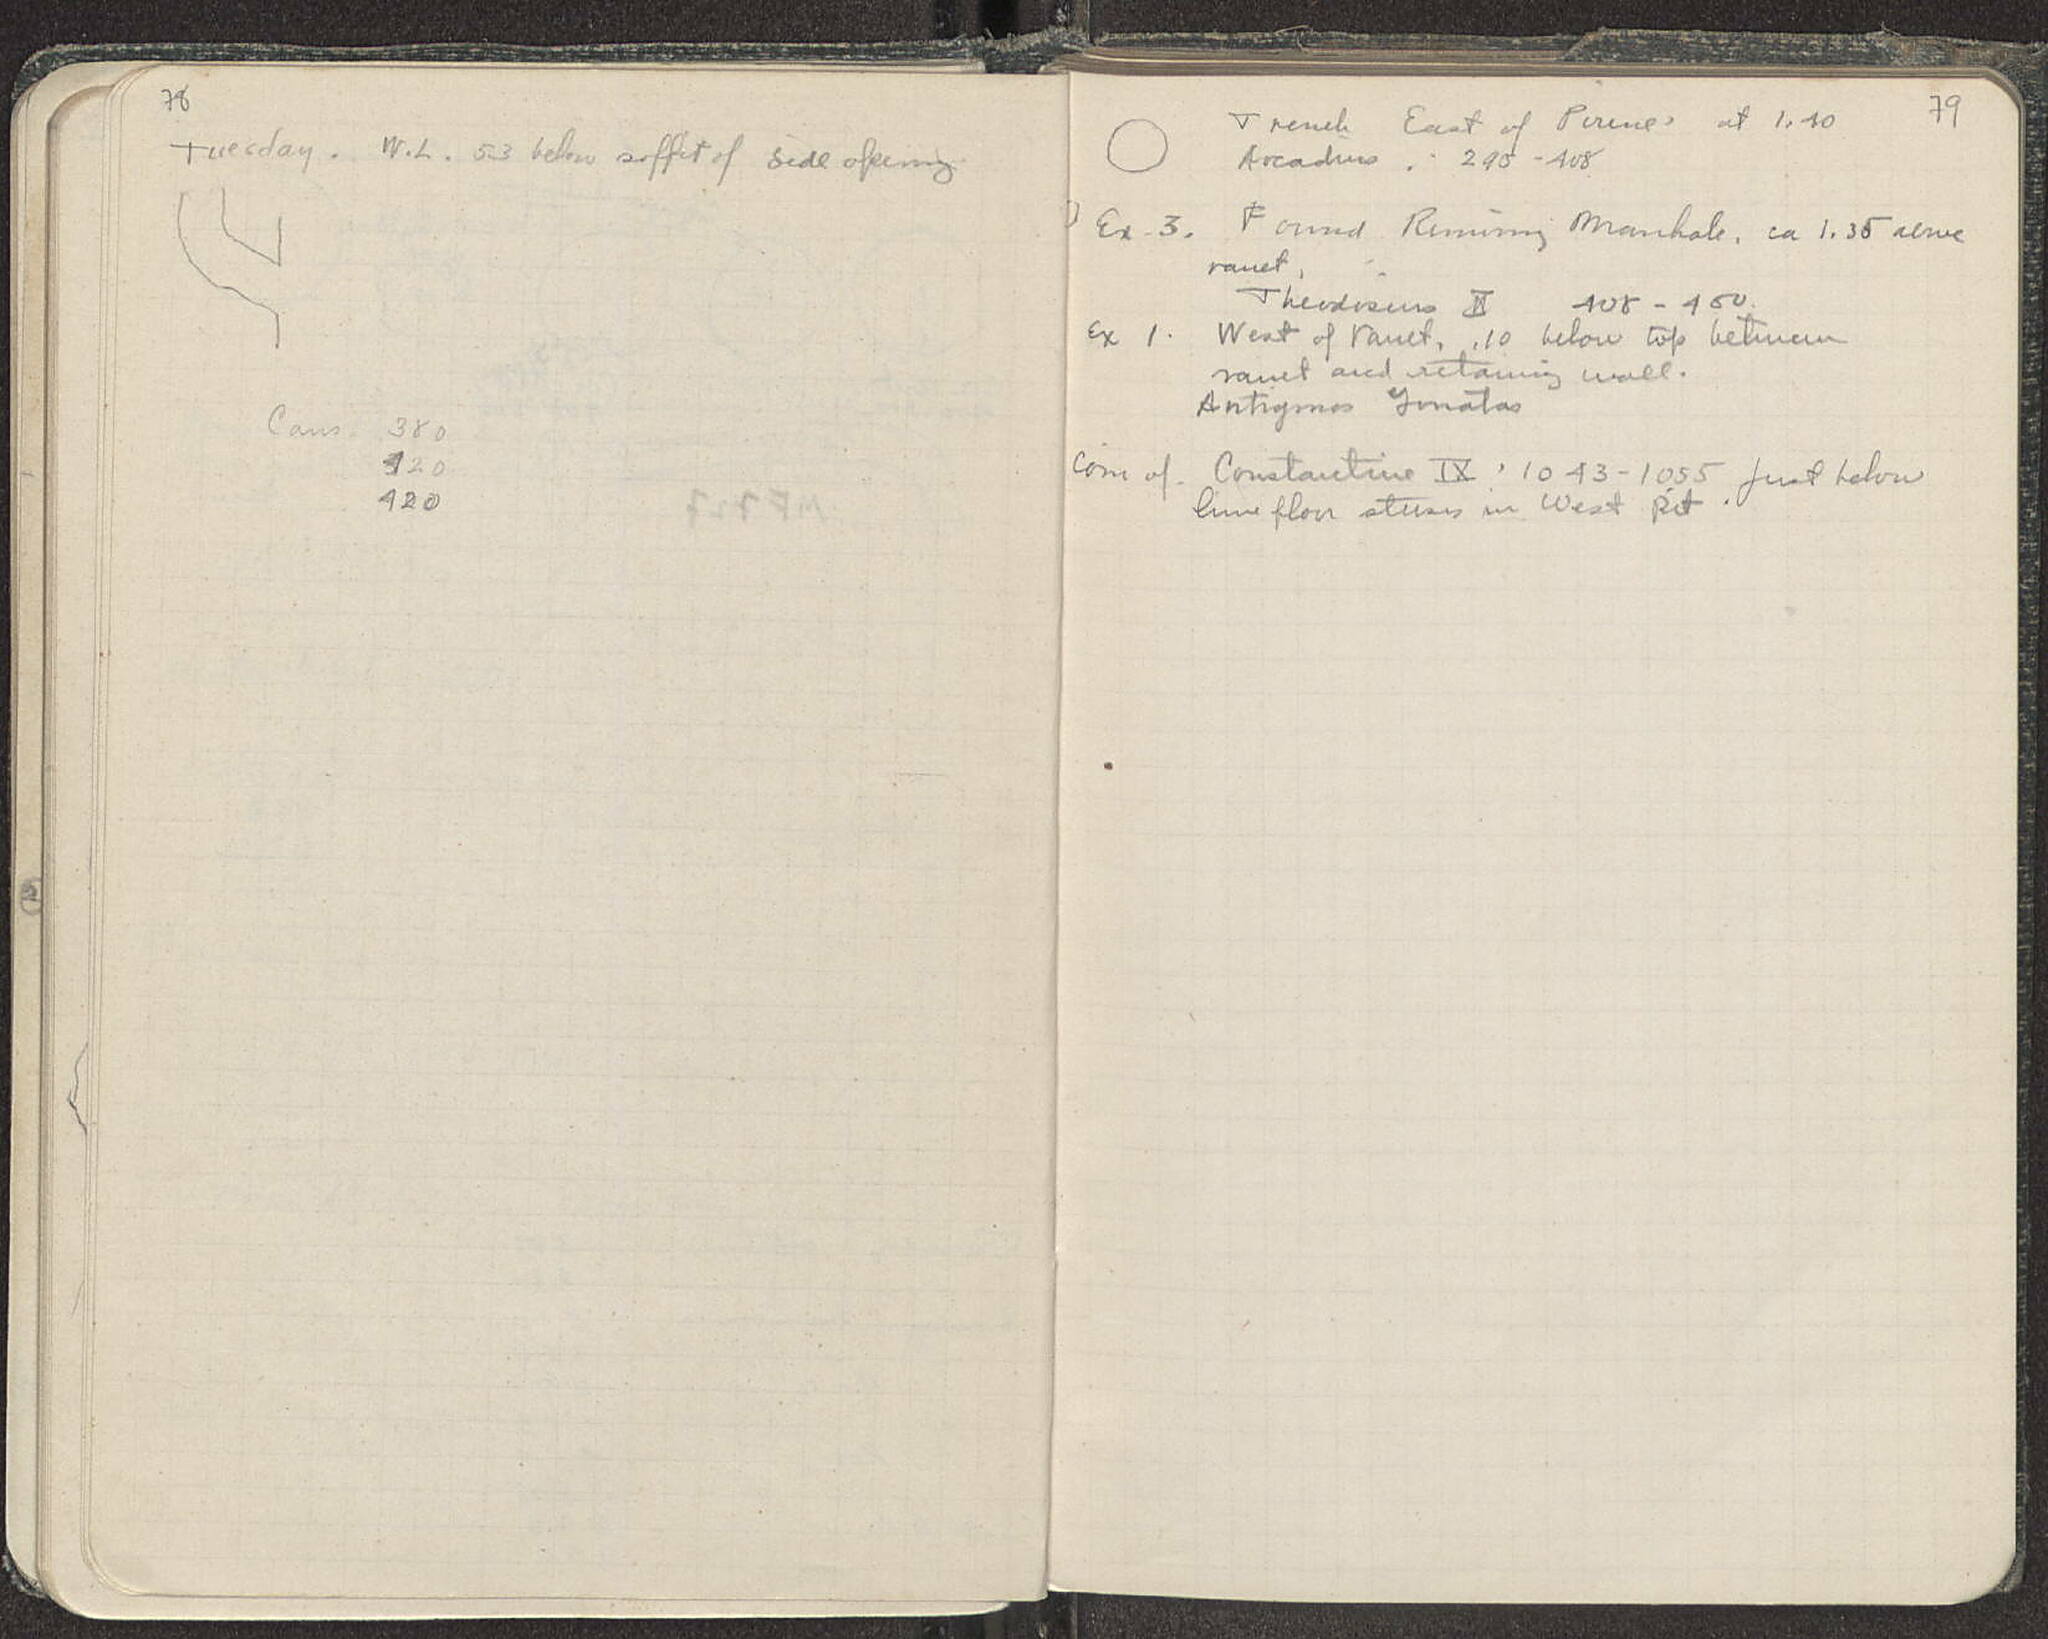 78
Tuesday. W.L. 53 below soffit of side opening
Cans. 380
420
420
79
Trench East of Pirene, at 1.40
Arcadius. 295-408
Ex-3. Found Running Manhole, ca 1.35 above
vault,
Theodosius II 408-450.
Ex 1. West of Vault, .10 below top between
vault and retaining wall.
Antigonos Gonatas
Coin of. Constantine IX, 1043-1055 Just below
lime floor in West pit.